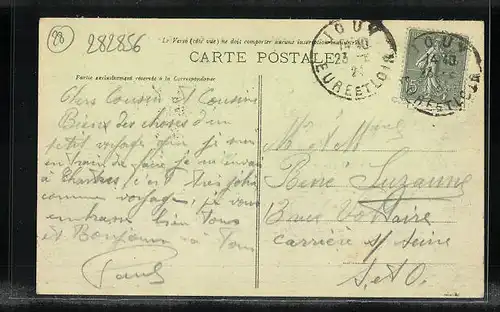 28
282856
Le Verso (côté vue) ne doit comporter aucune inscription
CARTE POSTALE
Partie exclusivement réservée à la Correspondance
JOUY
14 40
23
EURE ET LOIR
JOUY
14 40
15
Chers Cousin et Cousine
Bien des choses d'un
petit voyage que je suis
en train de faire je m'en vai
à Chartres c'est très joli
comme voyage, je vous
embrasse bien tous
et Bonjour à Tous
Paul
Mr et Mme
René Suzanne
Rue Voltaire
Carrière s/ Seine
S. et O.